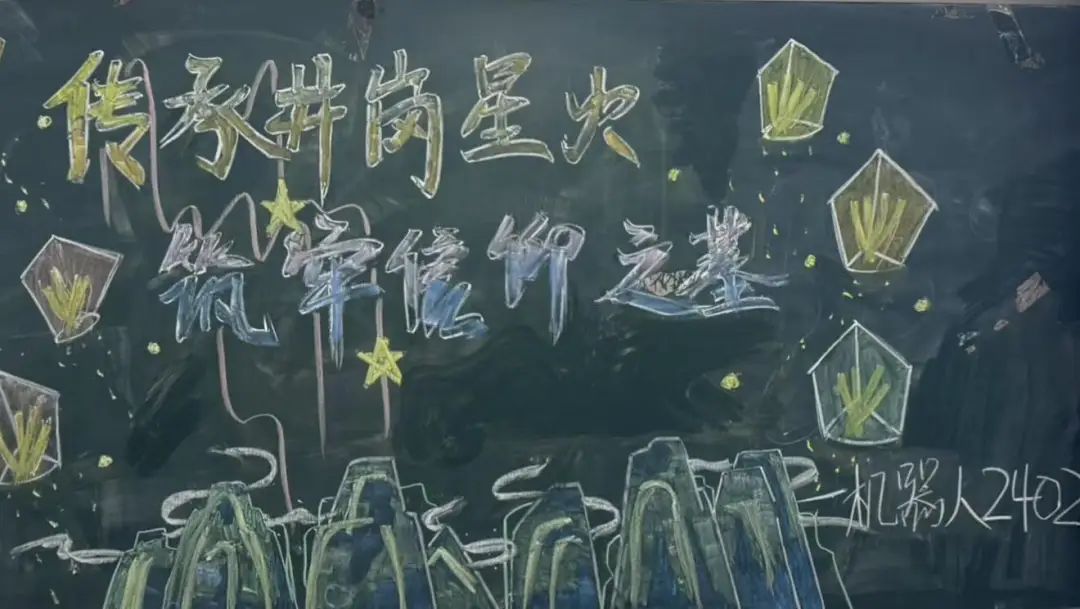 传承井岗星火
筑牢信仰之基
机器人2402